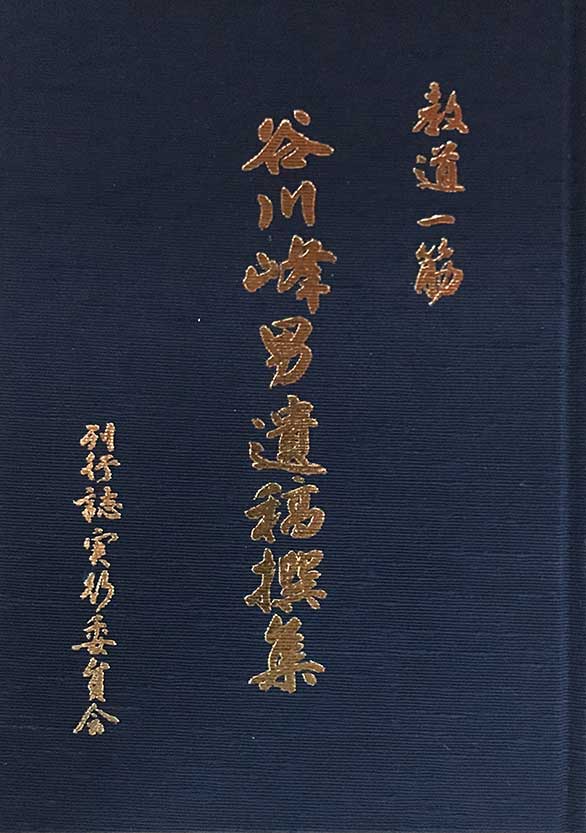 教道一筋
谷川峰男遺稿撰集
刊行誌実行委員会